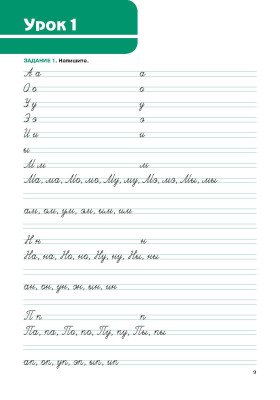 Урок 1
ЗАДАНИЕ 1. Напишите.
А а а
О о о
У у у
Э э э
И и и
ы
М м м
Ма, ма, Мо, мо, Му, му, Мэ, мэ, Мы, мы
ам, ом, ум, эм, ым, им
Н н н
На, на, Но, но, Ну, ну, Ны, ны
ан, он, ун, эн, ын, ин
П п п
Па, па, По, по, Пу, пу, Пы, пы
ап, оп, уп, эп, ып, ип
9